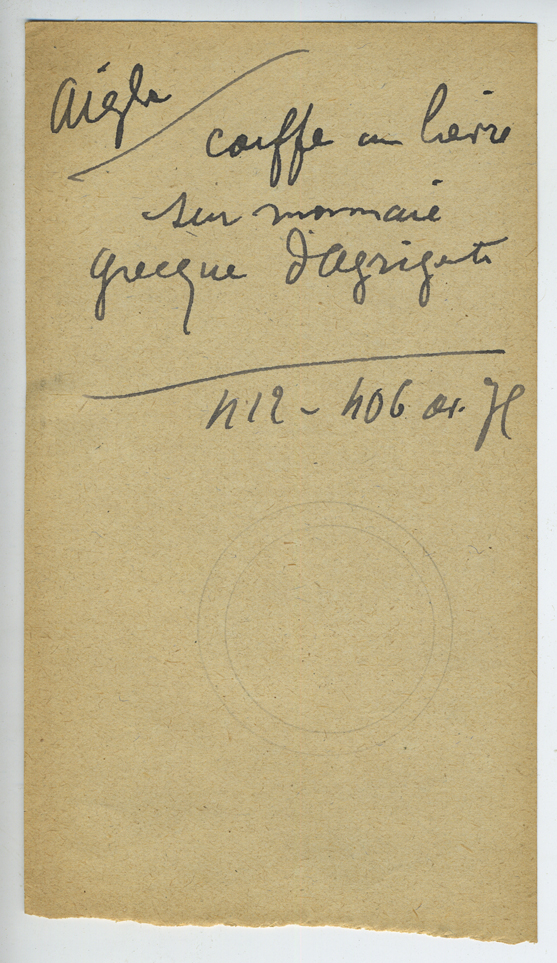 Aigle
coiffe un lièvre
sur monnaie
grecque d'Agrigente
412 - 406 av. JC